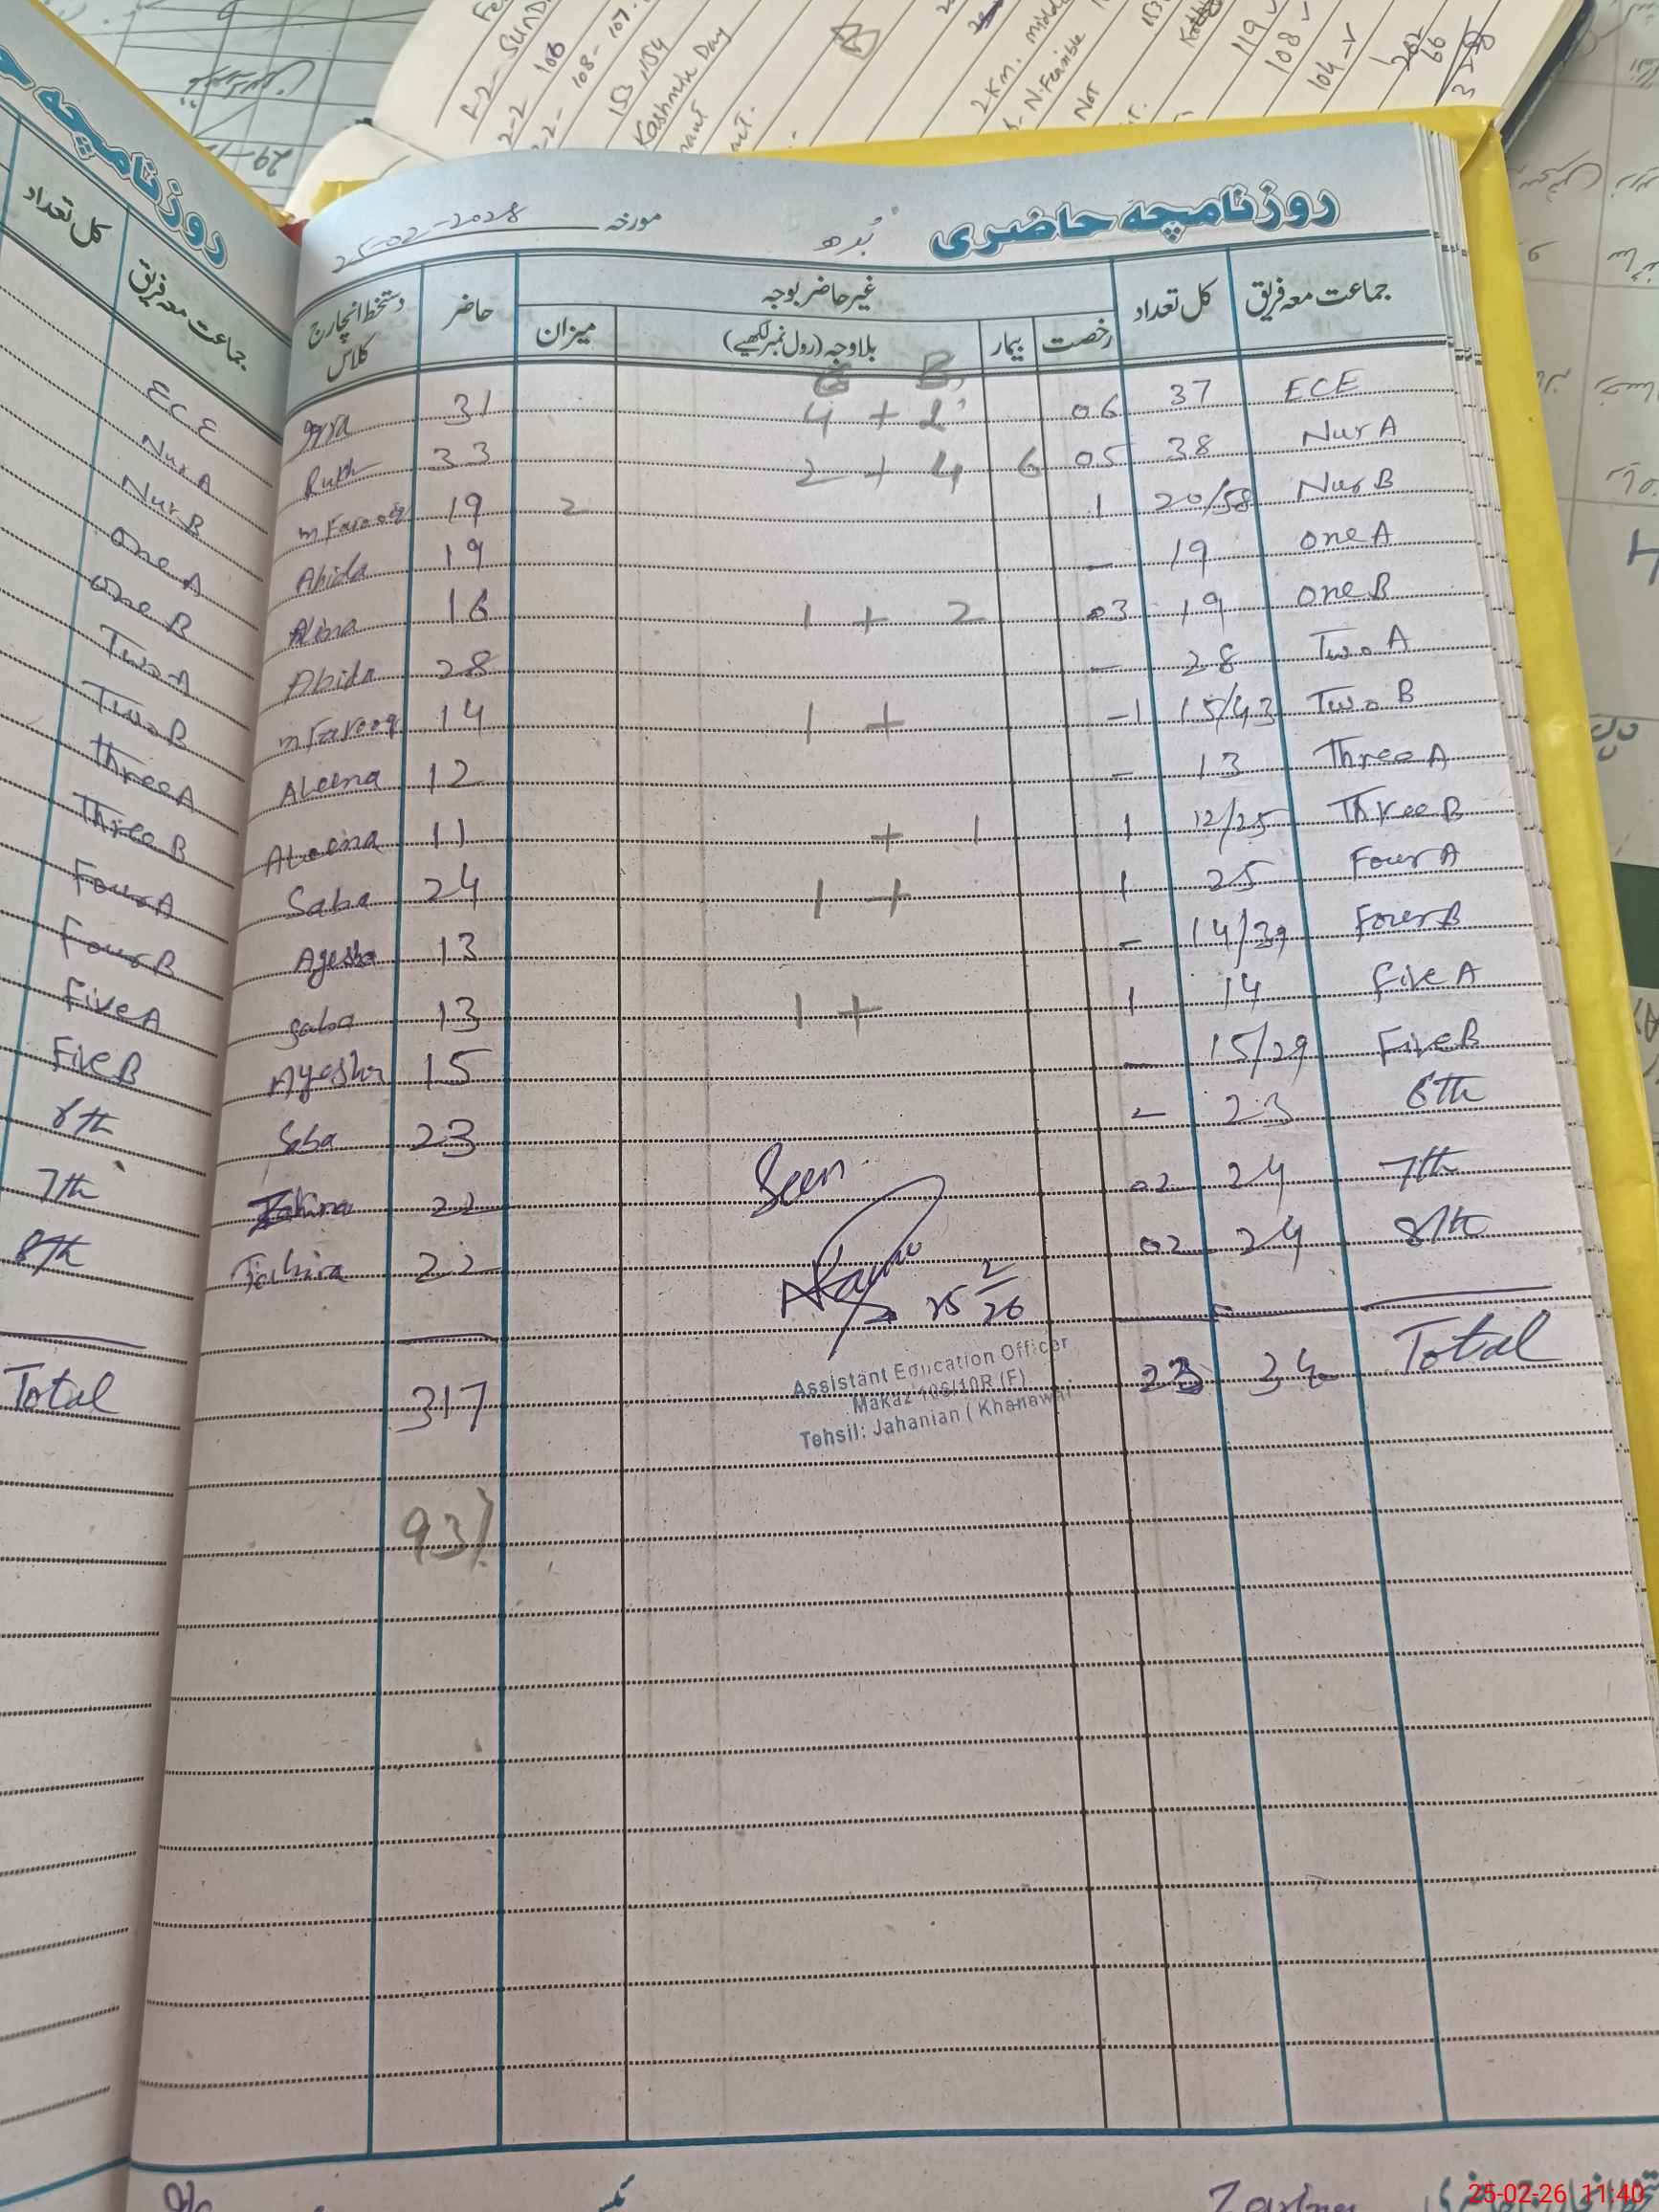 روزنامچہ حاضری بُدھ مورخہ 25-02-2028
جماعت معہ فریق کل تعداد غیر حاضر بوجہ حاضر دستخط انچارج کلاس
رخصت بیمار بلاوجہ (رول نمبر لکھیے) میزان
G B
ECE 37 06 4 + 2 31
Nur A 38 05 6 2 + 4 33 Ruth
Nur B 20/58 1 2 19 m Farooq
one A 19 – 19 Abida
one B 19 03 1 + 2 16 Alina
Two A 28 – 28 Abida
Two B 15/43 –1 1 + 14 m Farooq
Three A 13 – 12 Aleena
Three B 12/25 1 + 1 11 Aleena
Four A 25 1 1 + 24 Saba
Four B 14/39 – 13 Ayesha
Five A 14 1 1 + 13 Saba
Five B 15/29 – 15 Ayesha
6th 23 – 23 Saba
7th 24 02 Seen 22 Tahira
8th 24 02 22 Tahira
25 2/26
Assistant Education Officer
Makaz 106/10R (F)
Tehsil: Jahanian ( Khanewal
Total 23 317
93%
روزنامچہ
جماعت معہ فریق کل تعداد
ECE
Nur A
Nur B
one A
one B
Two A
Two B
Three A
Three B
Four A
Four B
Five A
Five B
6th
7th
8th
Total
108 - 107
153, 154
Kashmir Day
2 Km. Middle
N. Feasible
Not
119
108
104
25-02-26 11:40